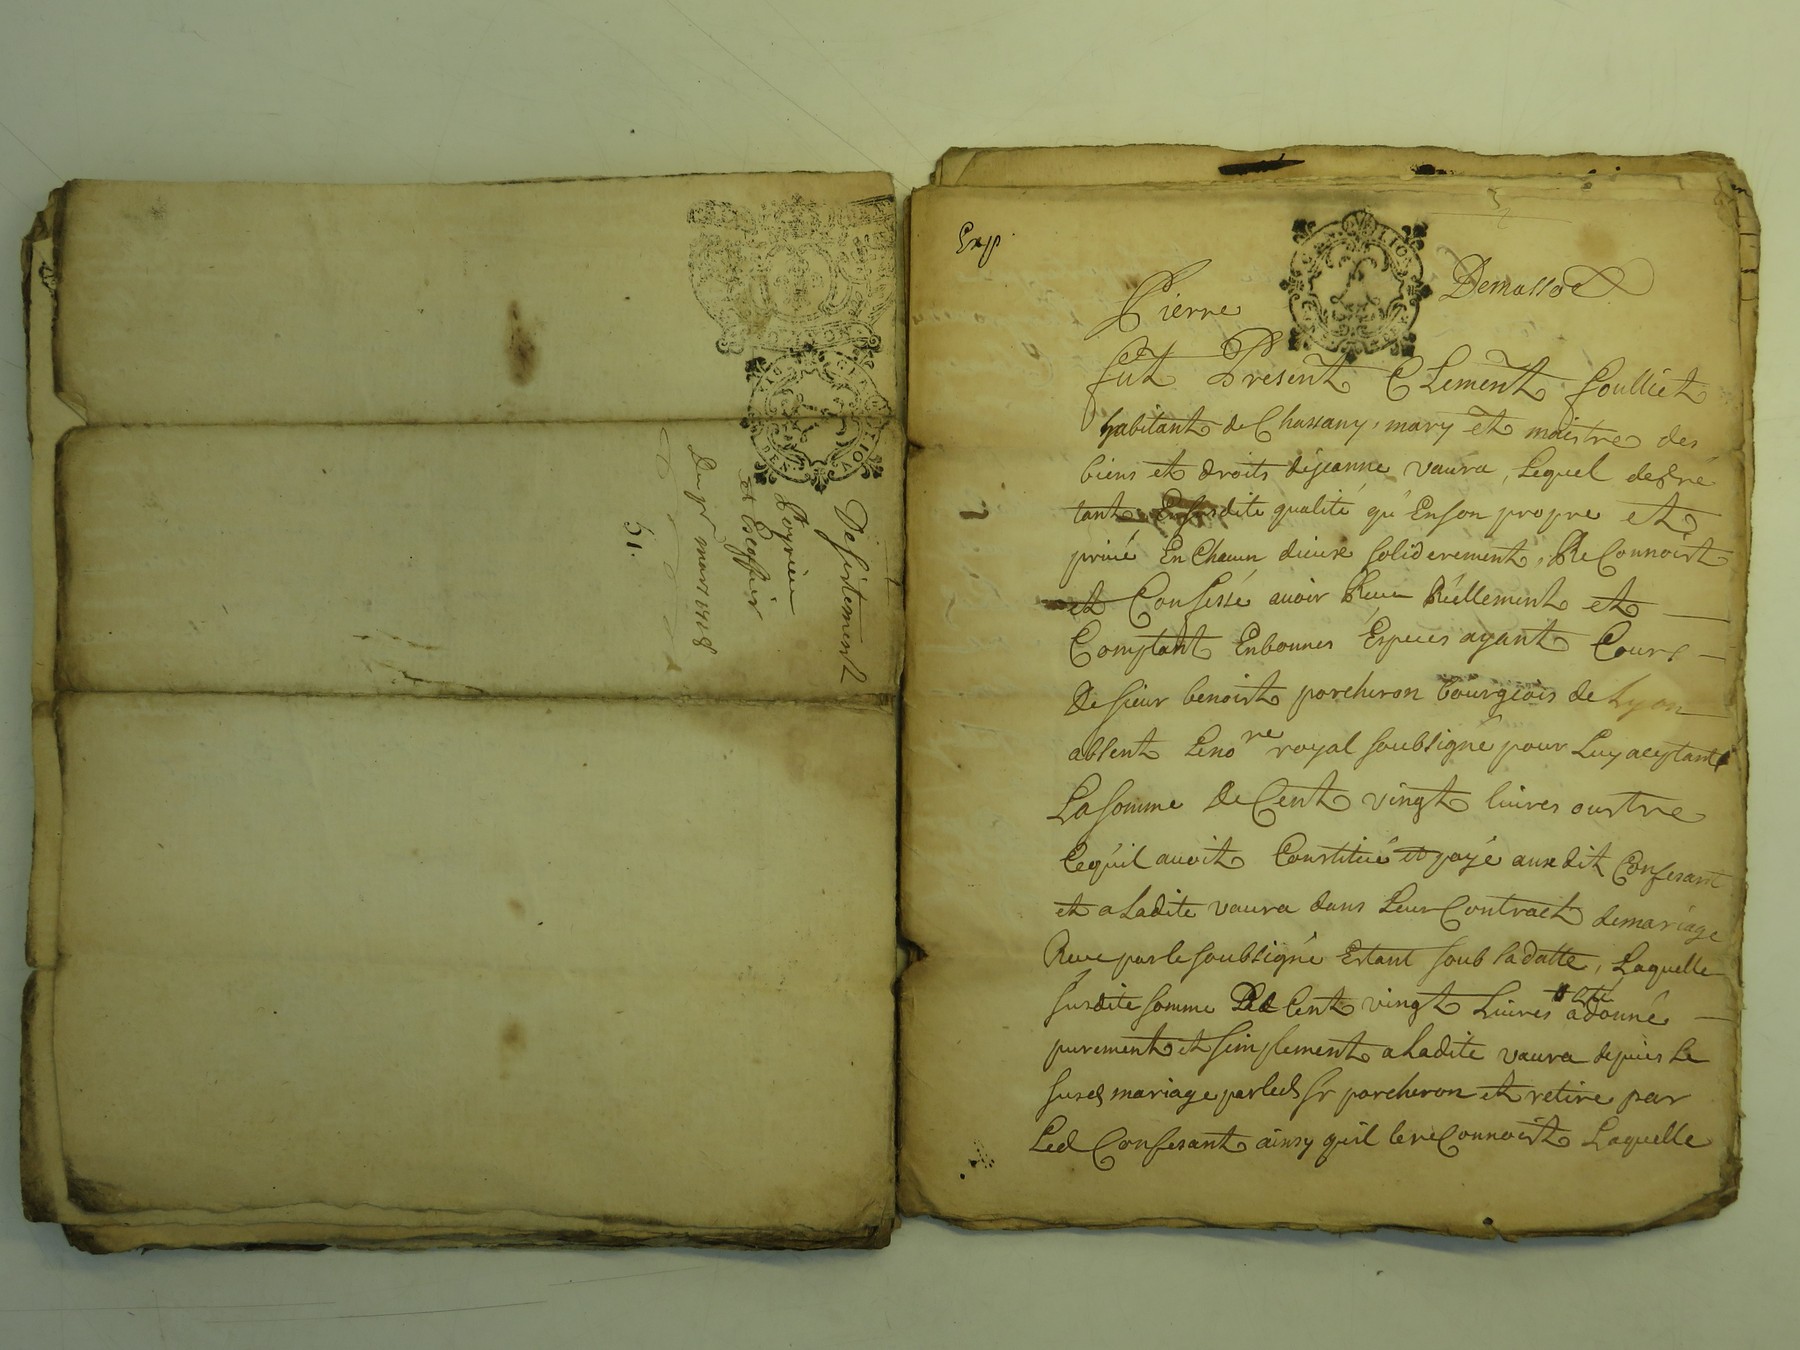 Desistement
Poyrieu
et Escoffier
Du pr mars 1718
51.
Exp
Pierre Demasso
fut Present Clement soulliet
habitant de Chassany, mary et maistre des
biens et droits de jeanne vaura, Lequel de gré
tant En sus dite qualité qu'En son propre et
privé En Chacun d'iceux soliderement, Reconnoist
et Confesse avoir Receu Réellement et
Comptant En bonnes Especes ayant Cours
De sieur benoist porcheron bourgeois de Lyon
absent Le nore royal soubsigné pour Luy aceptant
La somme de Cent vingt livres outre
Ce qu'il avoit Constitué et payé auxdit Confesant
et a Ladite vaura dans Leur Contract de mariage
Receu par le soubsigné Estant soub sa datte, Laquelle
susdite somme De Cent vingt Livres a eté donné
purement et simplement a Ladite vaura depuis Le
susd mariage par led Sr porcheron et retire par
Led Confesant ainsy qu'il le reconnoist Laquelle